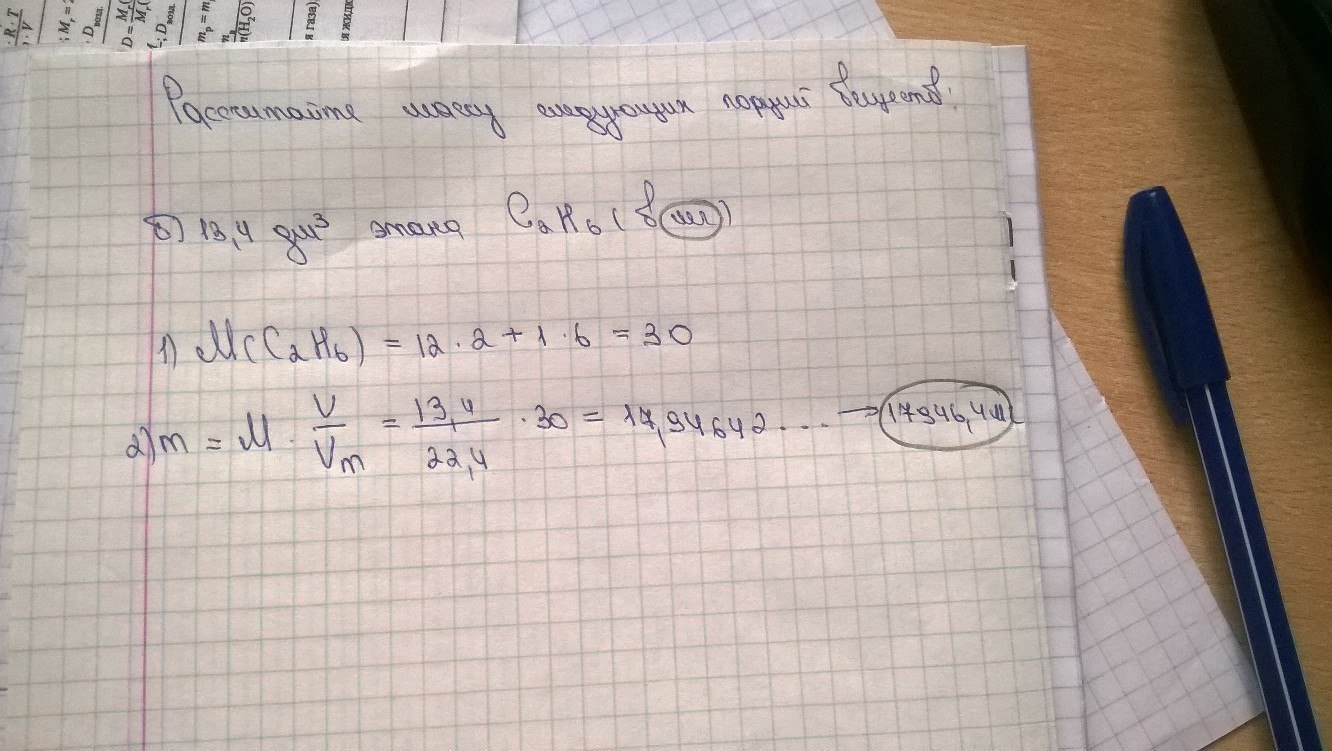 R · T
· V
; Mᵣ = 2
· Dвозд.
D =
; Dвозд.
mₚ = m
m(H₂O)
я газа)
я жидк
Рассчитайте массу следующих порций веществ:
б) 13,4 дм³ этана C₂H₆ (в мг)
1) M(C₂H₆) = 12 · 2 + 1 · 6 = 30
2) m = M · V/Vm = 13,4/22,4 · 30 = 17,94642... → 17946,4 мг